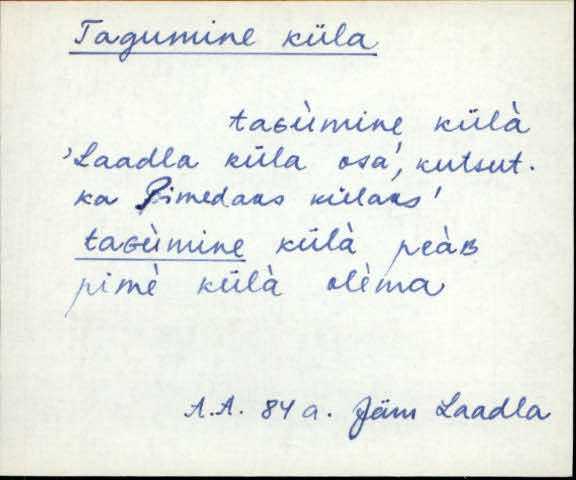 Tagumine küla
taGùmine külà
'Laadla küla osa, kutsut.
ka Pimedaks külaks'
taGùmine külà peàB
pimè külà olèma
A.A. 84 a. Jäm Laadla